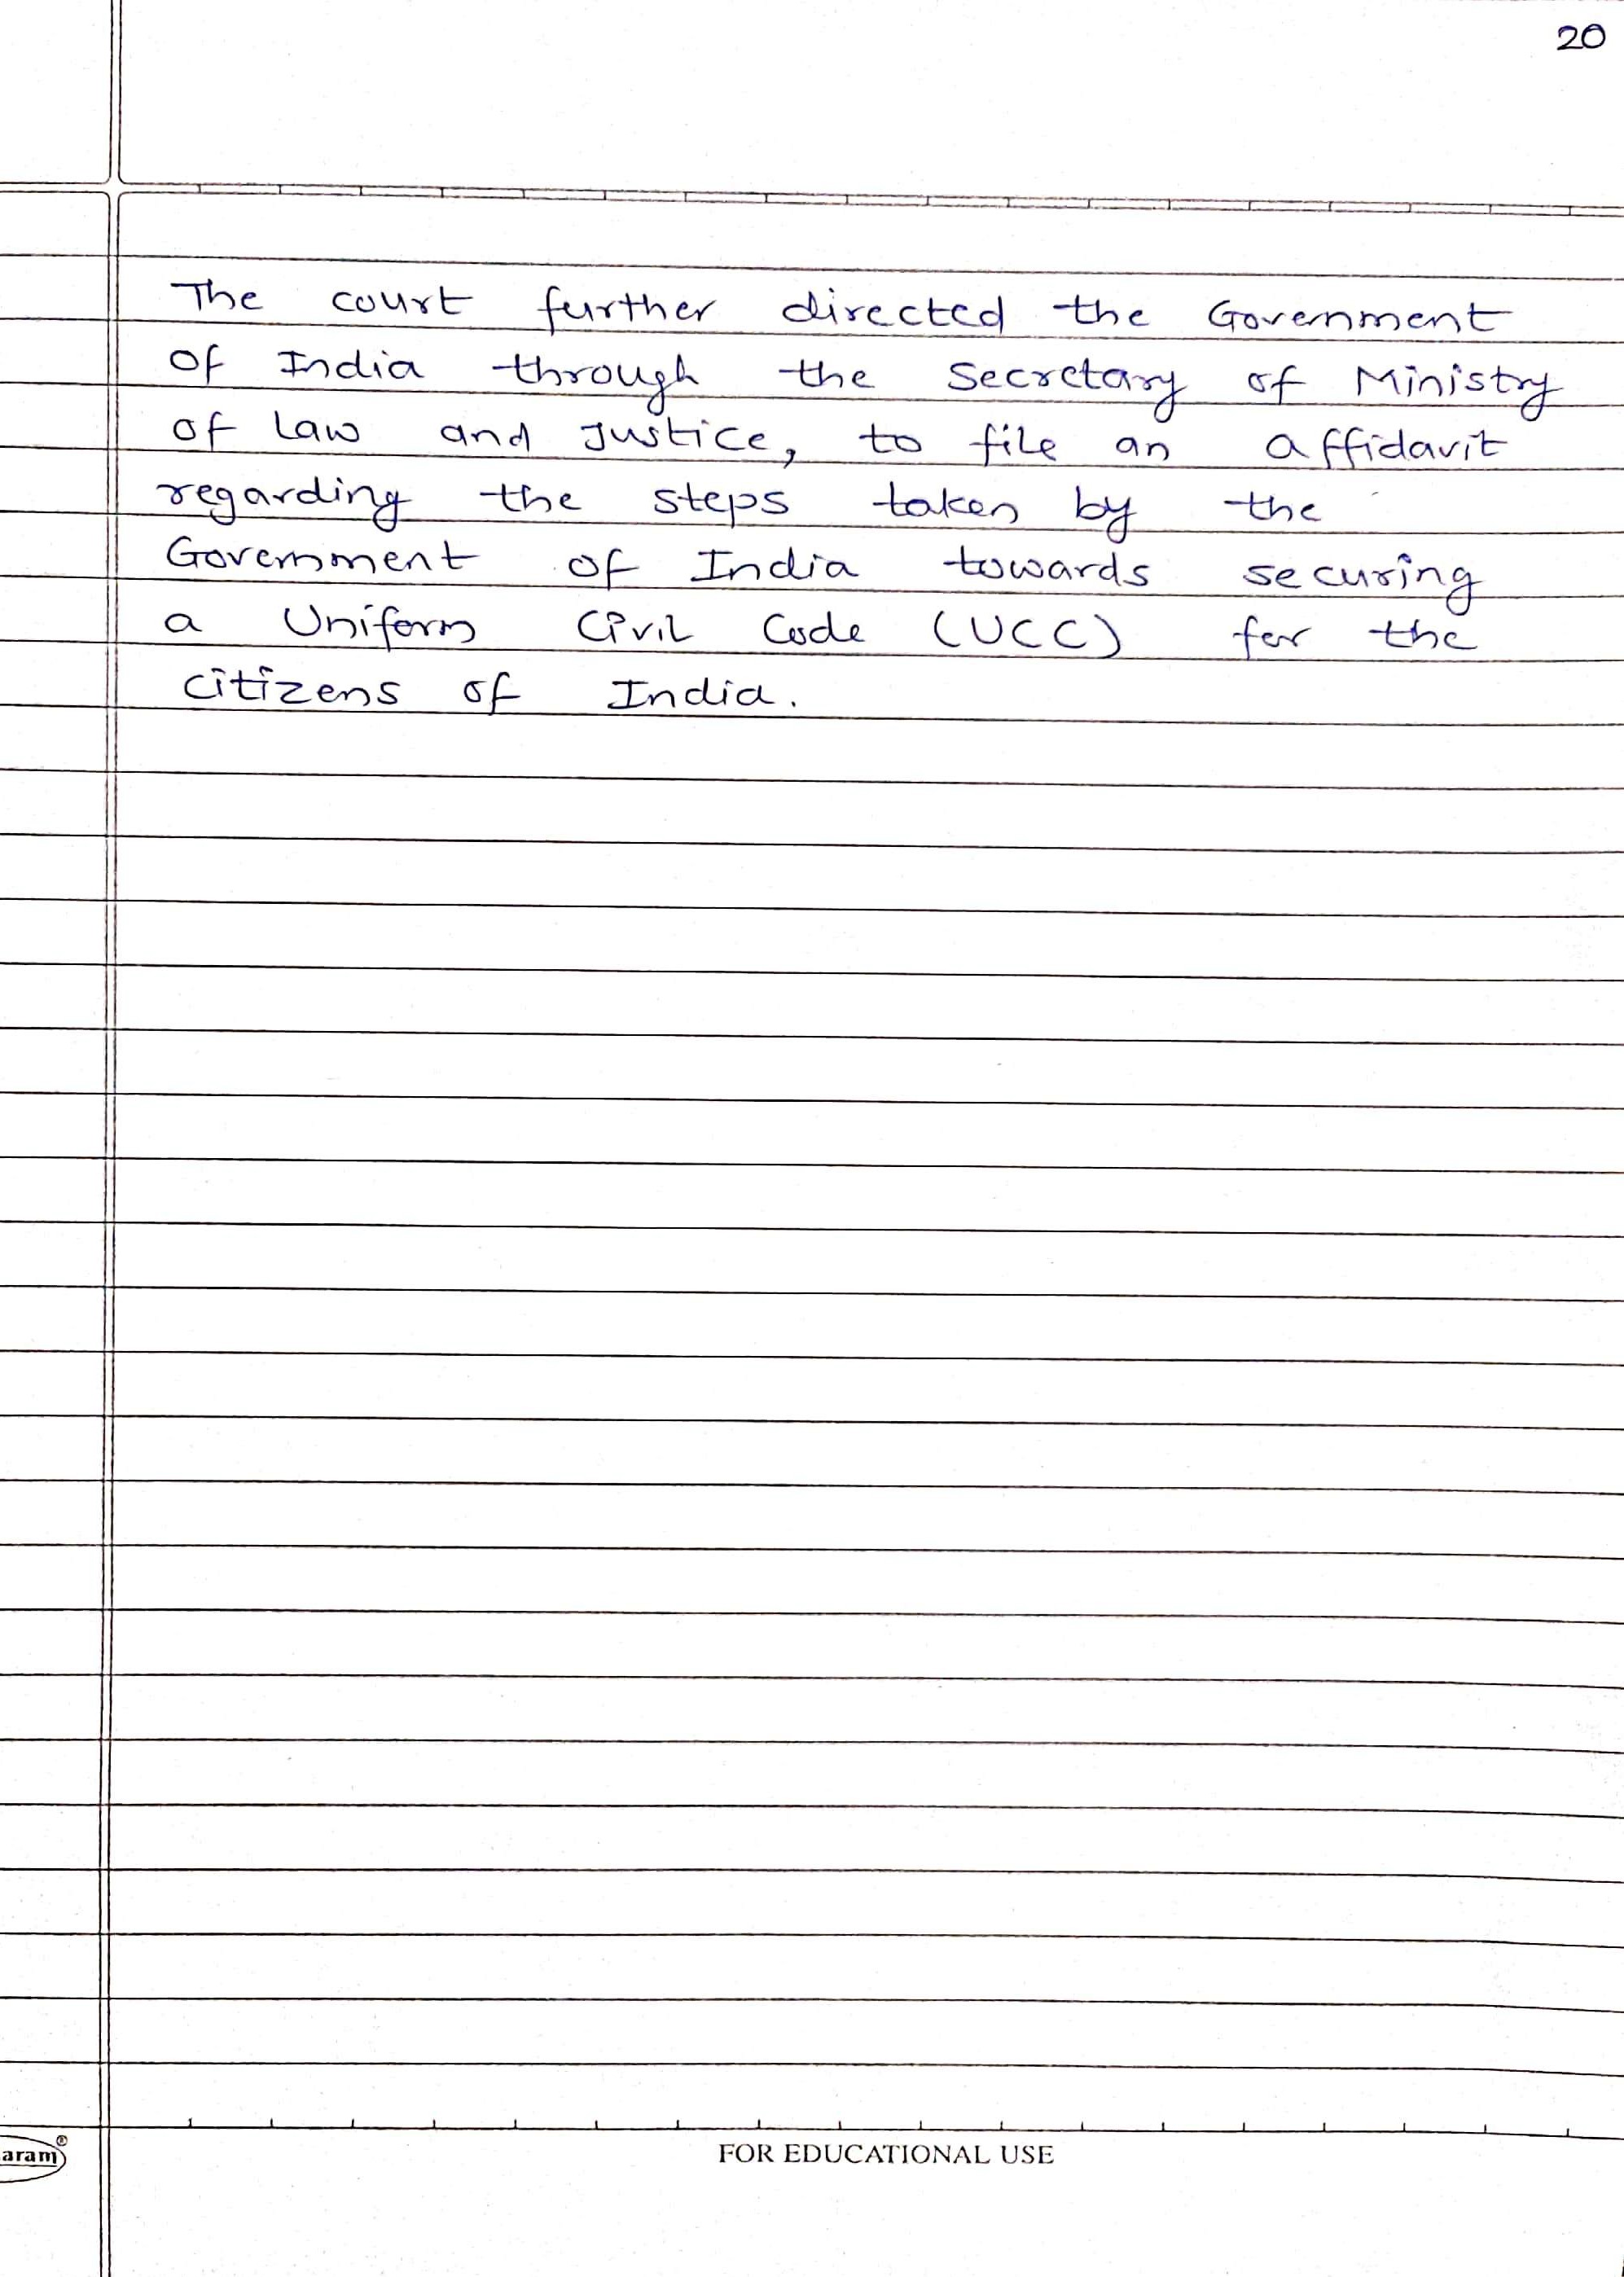 20
The court further directed the Government
of India through the Secretary of Ministry
of Law and Justice, to file an affidavit
regarding the steps taken by the
Government of India towards securing
a Uniform Civil Code (UCC) for the
citizens of India.
aram®
FOR EDUCATIONAL USE